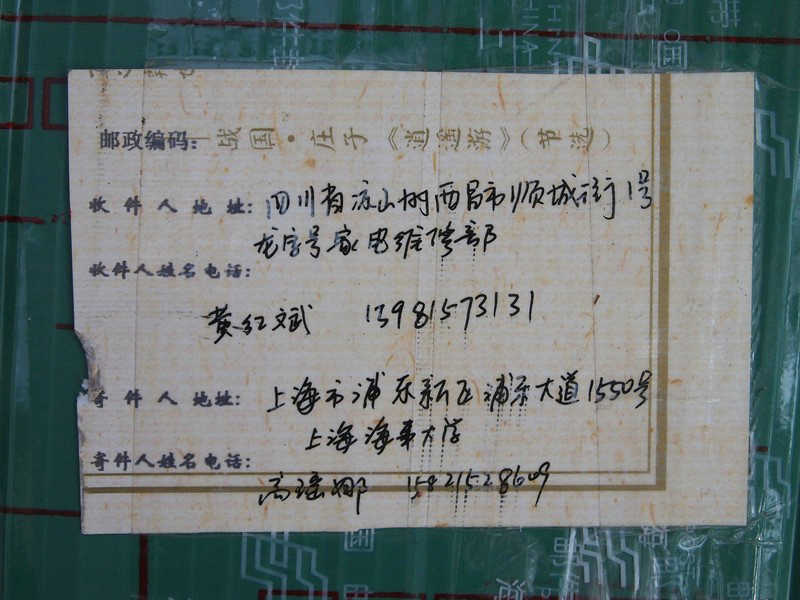 战国·庄子《逍遥游》(节选)
邮政编码:
收件人地址: 四川省凉山州西昌市顺城街1号
龙字号家电维修部
收件人姓名电话:
黄红斌 13981573131
寄件人地址: 上海市浦东新区浦东大道1550号
上海海事大学
寄件人姓名电话:
高瑶娜 15821528609
CHINA
CHINA
中国